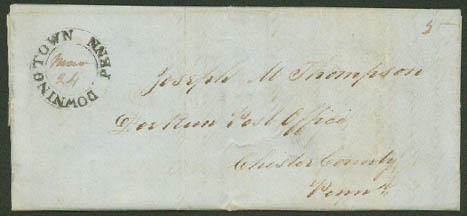 DOWNINGTOWN PENN
Mar
24
5
Joseph M Thompson
Doe Run Post Office
Chester County
Penn a